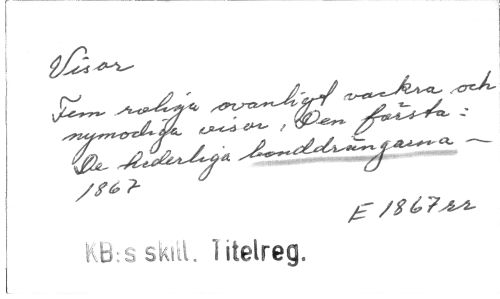 Visor
Fem roliga ovanligt vackra och
nymodiga visor, Den första:
De hederliga bonddrängarna -
1867
E 1867 rr
KB:s skill. Titelreg.